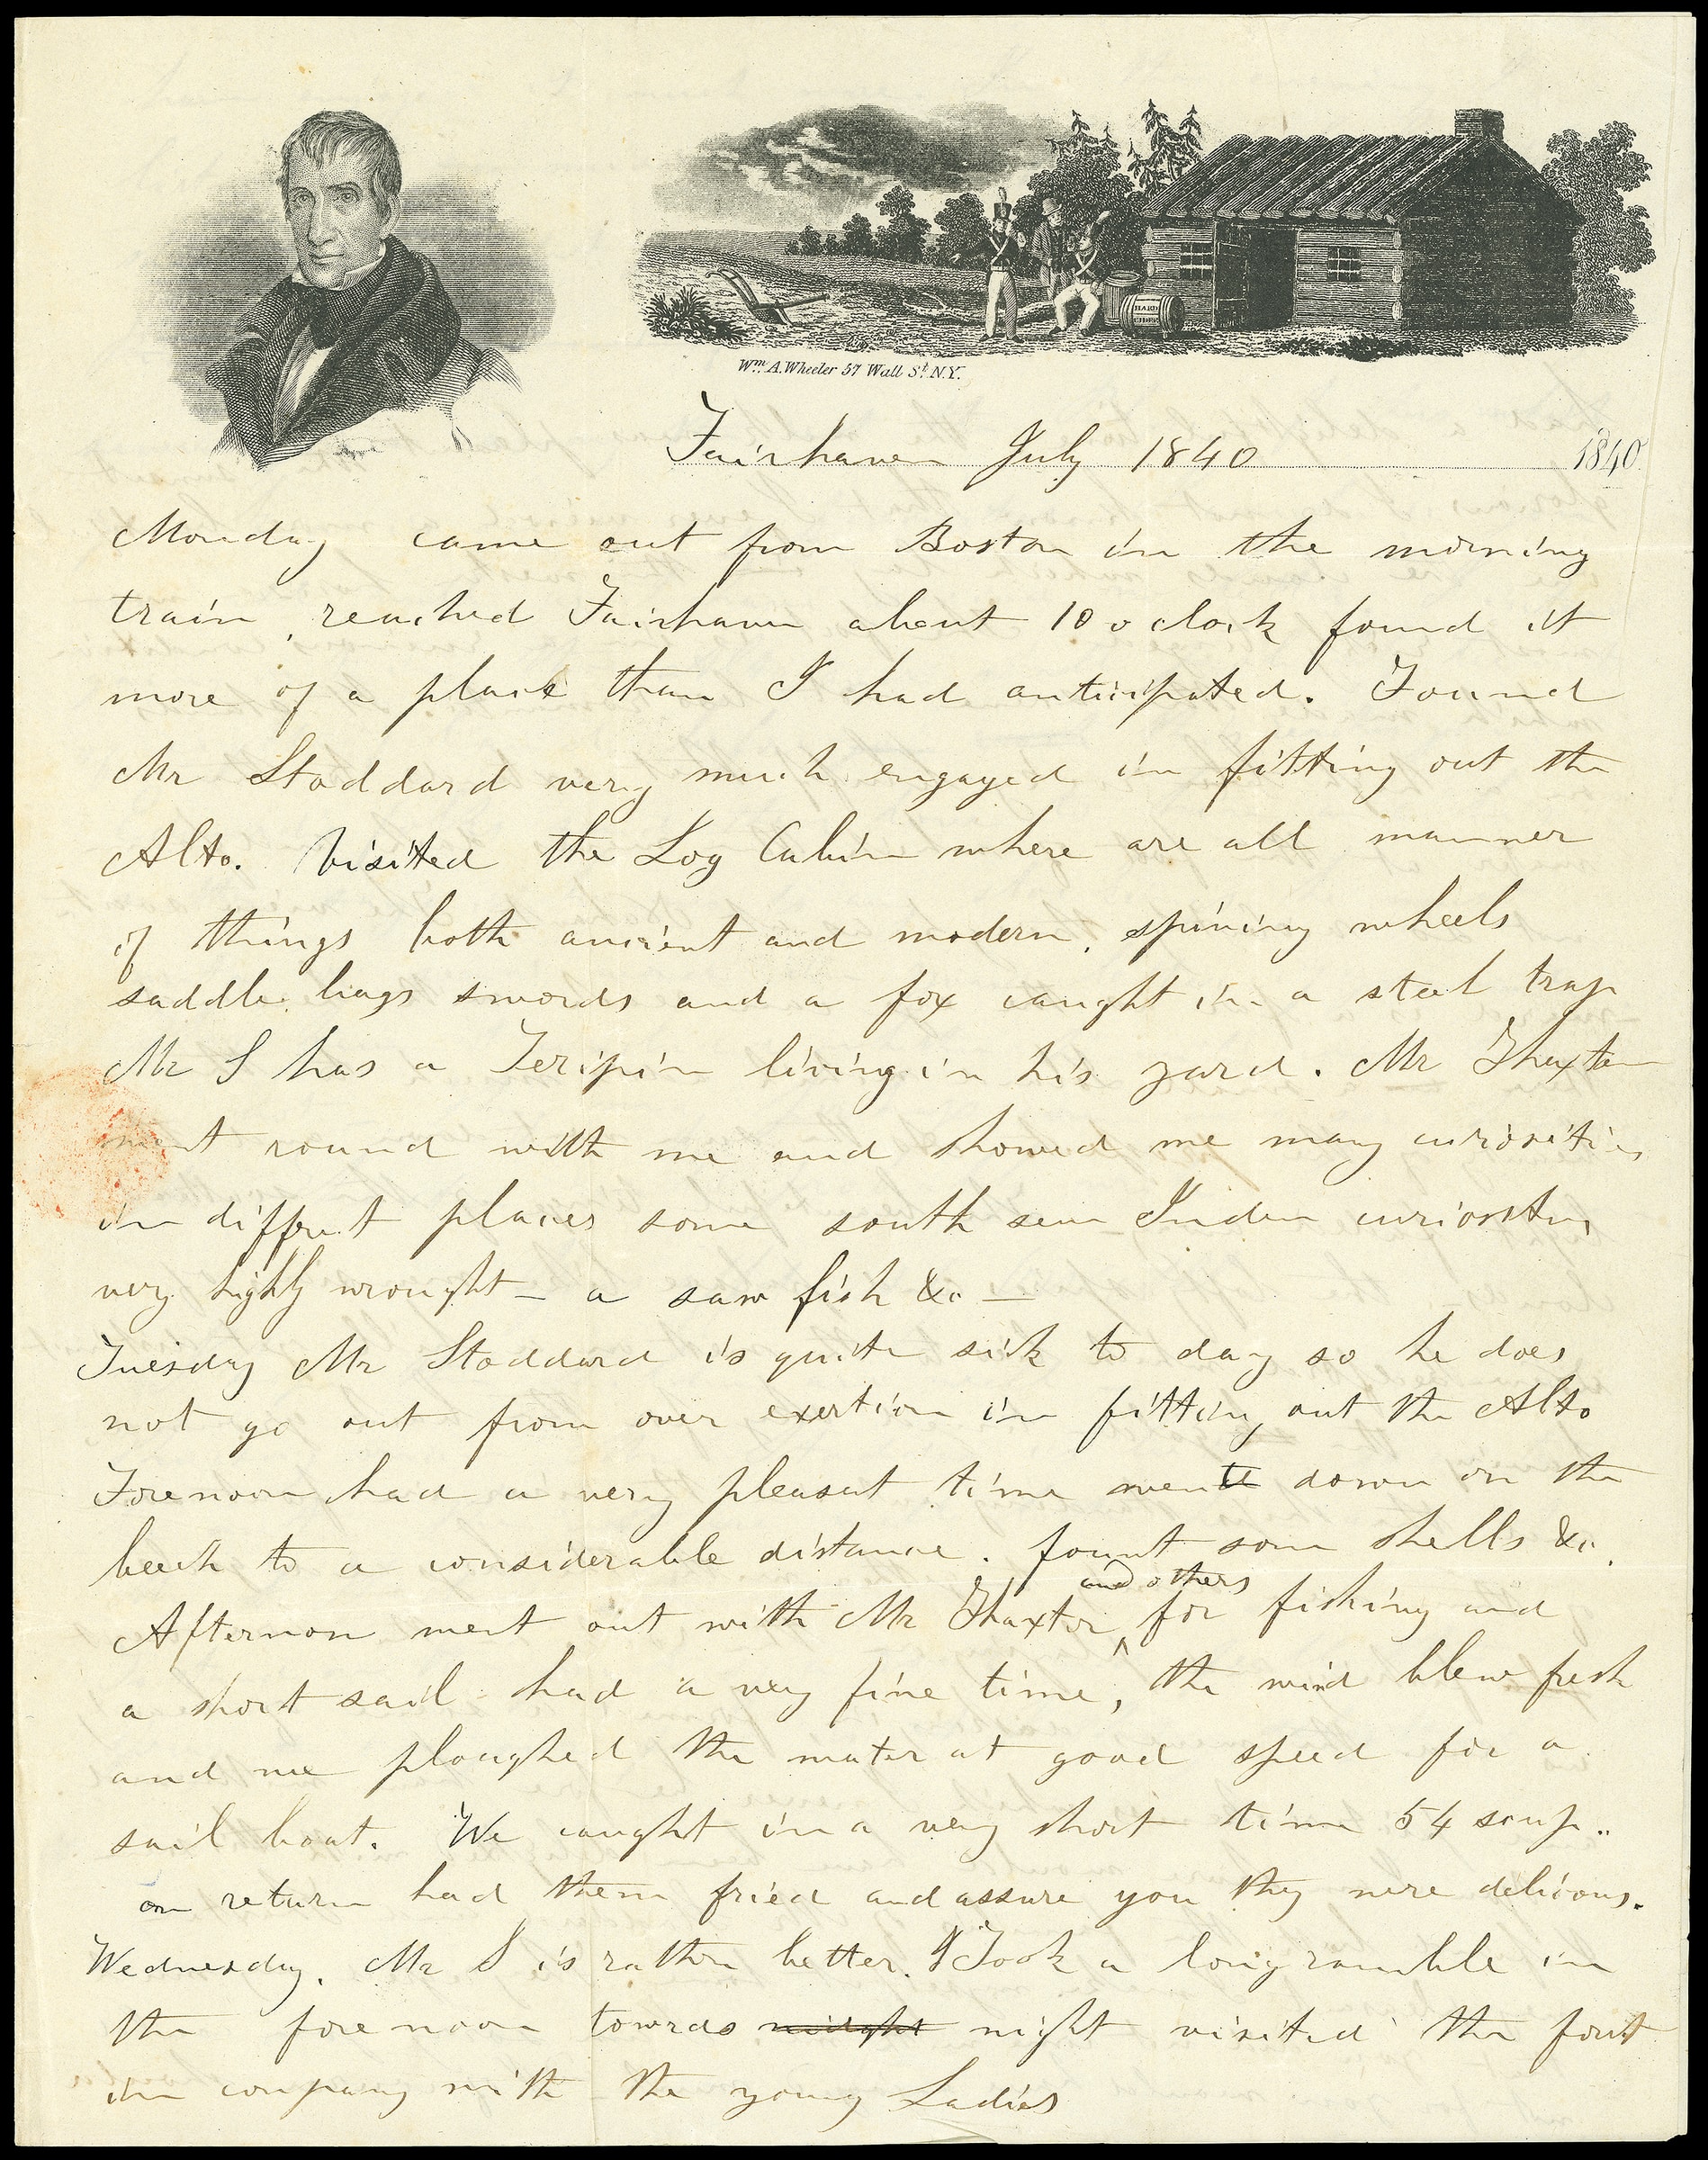 HARD
CIDER
Wm. A. Wheeler 57 Wall St. N.Y.
Fairhaven July 1840 1840
Monday came out from Boston in the morning
train, reached Fairhaven about 10 o clock found it
more of a place than I had anticipated. Found
Mr Stoddard very much engaged in fitting out the
Alto. Visited the Log Cabin where are all manner
of things both ancient and modern, spining wheels
saddle bags swords and a fox caught in a steel trap
Mr S has a Teripin living in his yard. Mr Thaxter
went round with me and showed me many curiosities
in diffrent places some south sea Indian curiosities
very highly wrought – a saw fish &c –
Tuesday Mr Stoddard is quite sick to day so he does
not go out from over exertion in fitting out the Alto
Forenoon had a very pleasat time went down on the
beech to a considerable distance. fount some shells &c.
and others
Afternoon went out with Mr Thaxter ^ for fishing and
a short sail had a very fine time, the wind blew fresh
and we ploughed the water at good speed for a
sail boat. We caught in a very short time 54 scup..
on return had them fried and assure you they were delicous.
Wednesday. Mr S is rather better. I Took a long ramble in
the forenoon towards night visited the fort
in company with the young Ladies